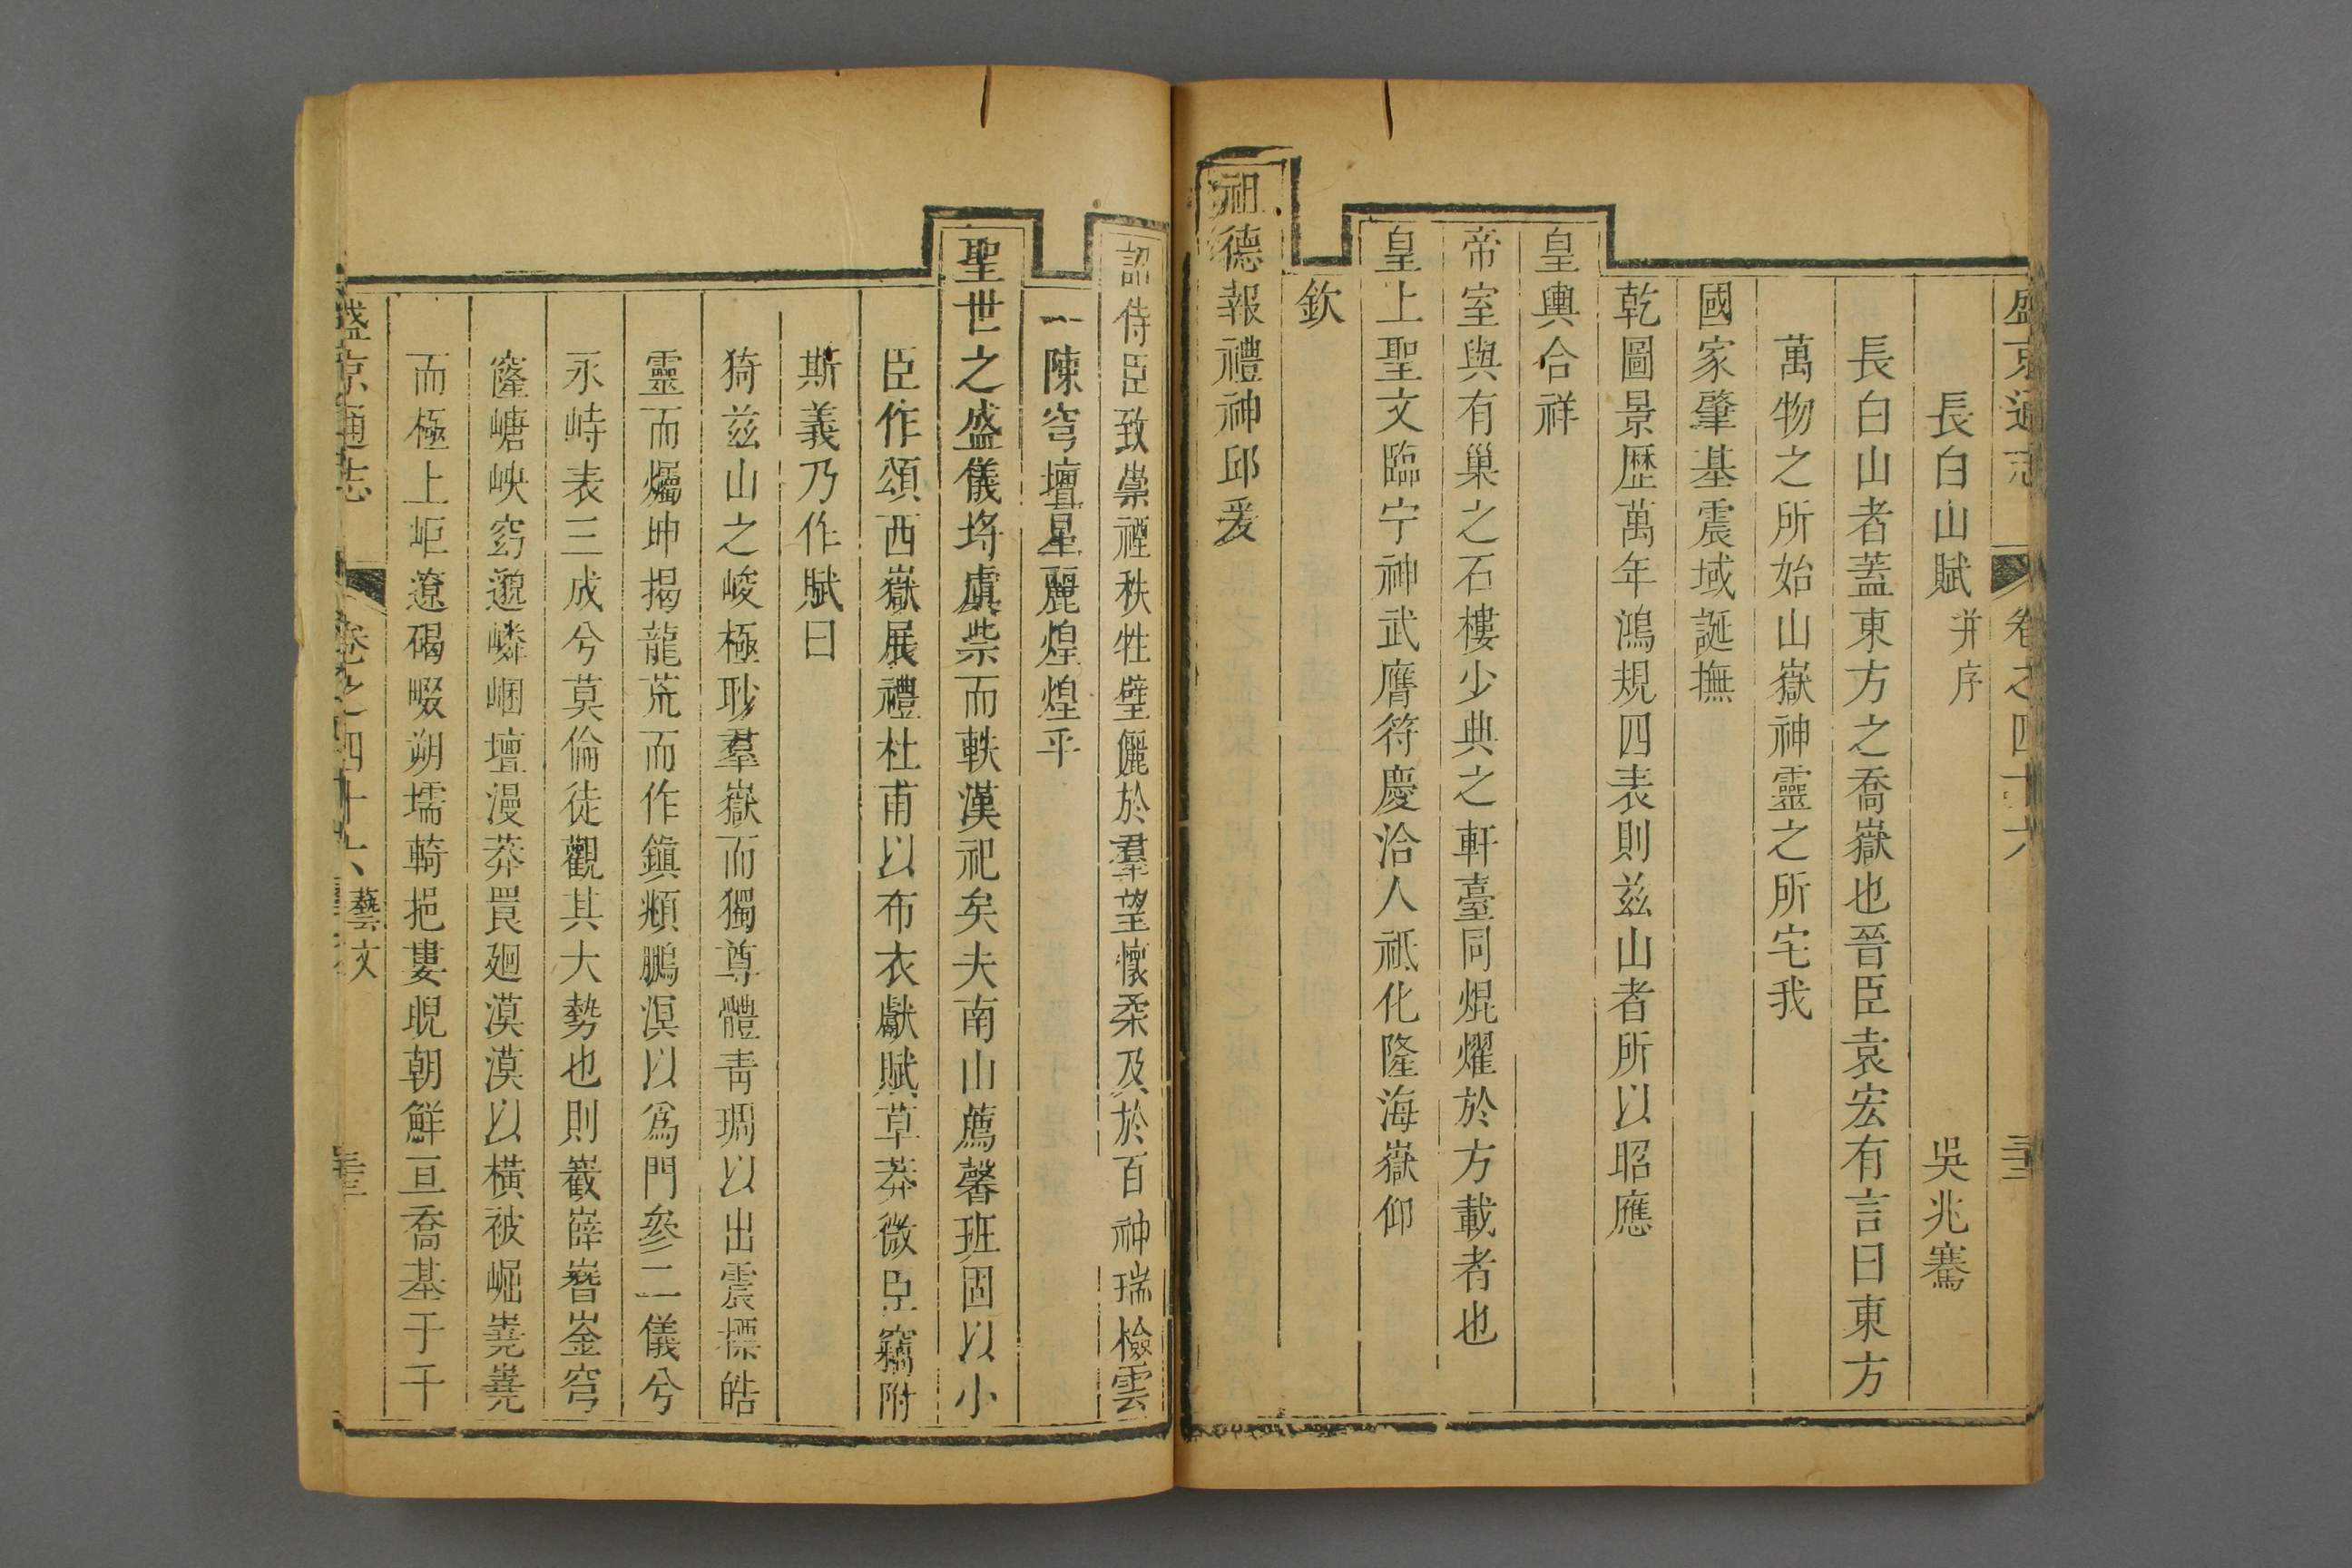 盛京通志 卷之四十六
長白山賦 并序 吳兆騫
長白山者蓋東方之喬嶽也晉臣袁宏有言曰東方
萬物之所始山嶽神靈之所宅我
國家肇基震域誕撫
乾圖景歷萬年鴻規四表則茲山者所以昭應
皇輿合祥
帝室與有巢之石樓少典之軒臺同焜燿於方載者也
皇上聖文臨宁神武膺符慶洽人祇化隆海嶽仰
欽
祖德報禮神邱爰
詔侍臣致崇禋秩牲璧儷於羣望懷柔及於百神瑞檢雲
陳穹壇星麗煌煌乎
聖世之盛儀垺虞柴而軼漢祀矣夫南山薦馨班固以小
臣作頌西嶽展禮杜甫以布衣獻賦草莽微臣竊附
斯義乃作賦曰
猗茲山之峻極眇羣嶽而獨尊體青琱以出震標皓
靈而爥坤揭龍荒而作鎮頫鵬溟以為門參二儀兮
永峙表三成兮莫倫徒觀其大勢也則嶻嶭嶜崟穹
窿嵣岟窈邈嶙崓壇漫莽罠廻漠漠以橫被崛嶤嶤
而極上岠遼碣畷朔壖輢挹婁睨朝鮮亘喬基于千
盛京通志 卷之四十六 藝文 三十三